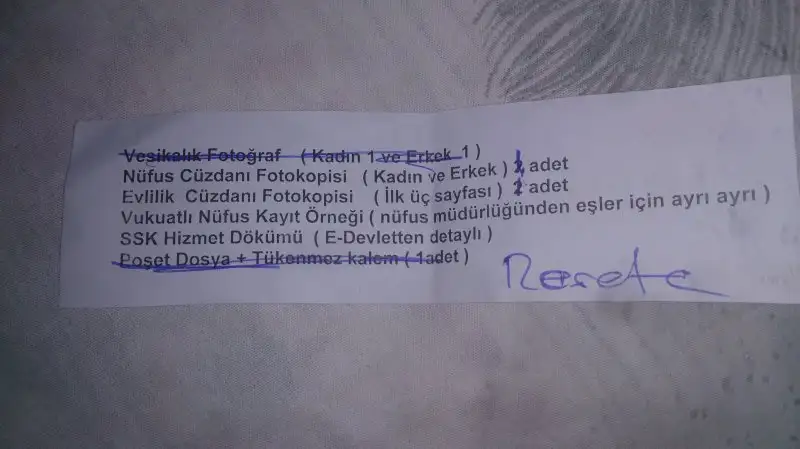 Vesikalık Fotoğraf ( Kadın 1 ve Erkek 1 )
Nüfus Cüzdanı Fotokopisi ( Kadın ve Erkek ) adet
Evlilik Cüzdanı Fotokopisi ( İlk üç sayfası ) adet
Vukuatlı Nüfus Kayıt Örneği ( nüfus müdürlüğünden eşler için ayrı ayrı )
SSK Hizmet Dökümü ( E-Devletten detaylı )
Poşet Dosya + Tükenmez kalem ( 1adet )